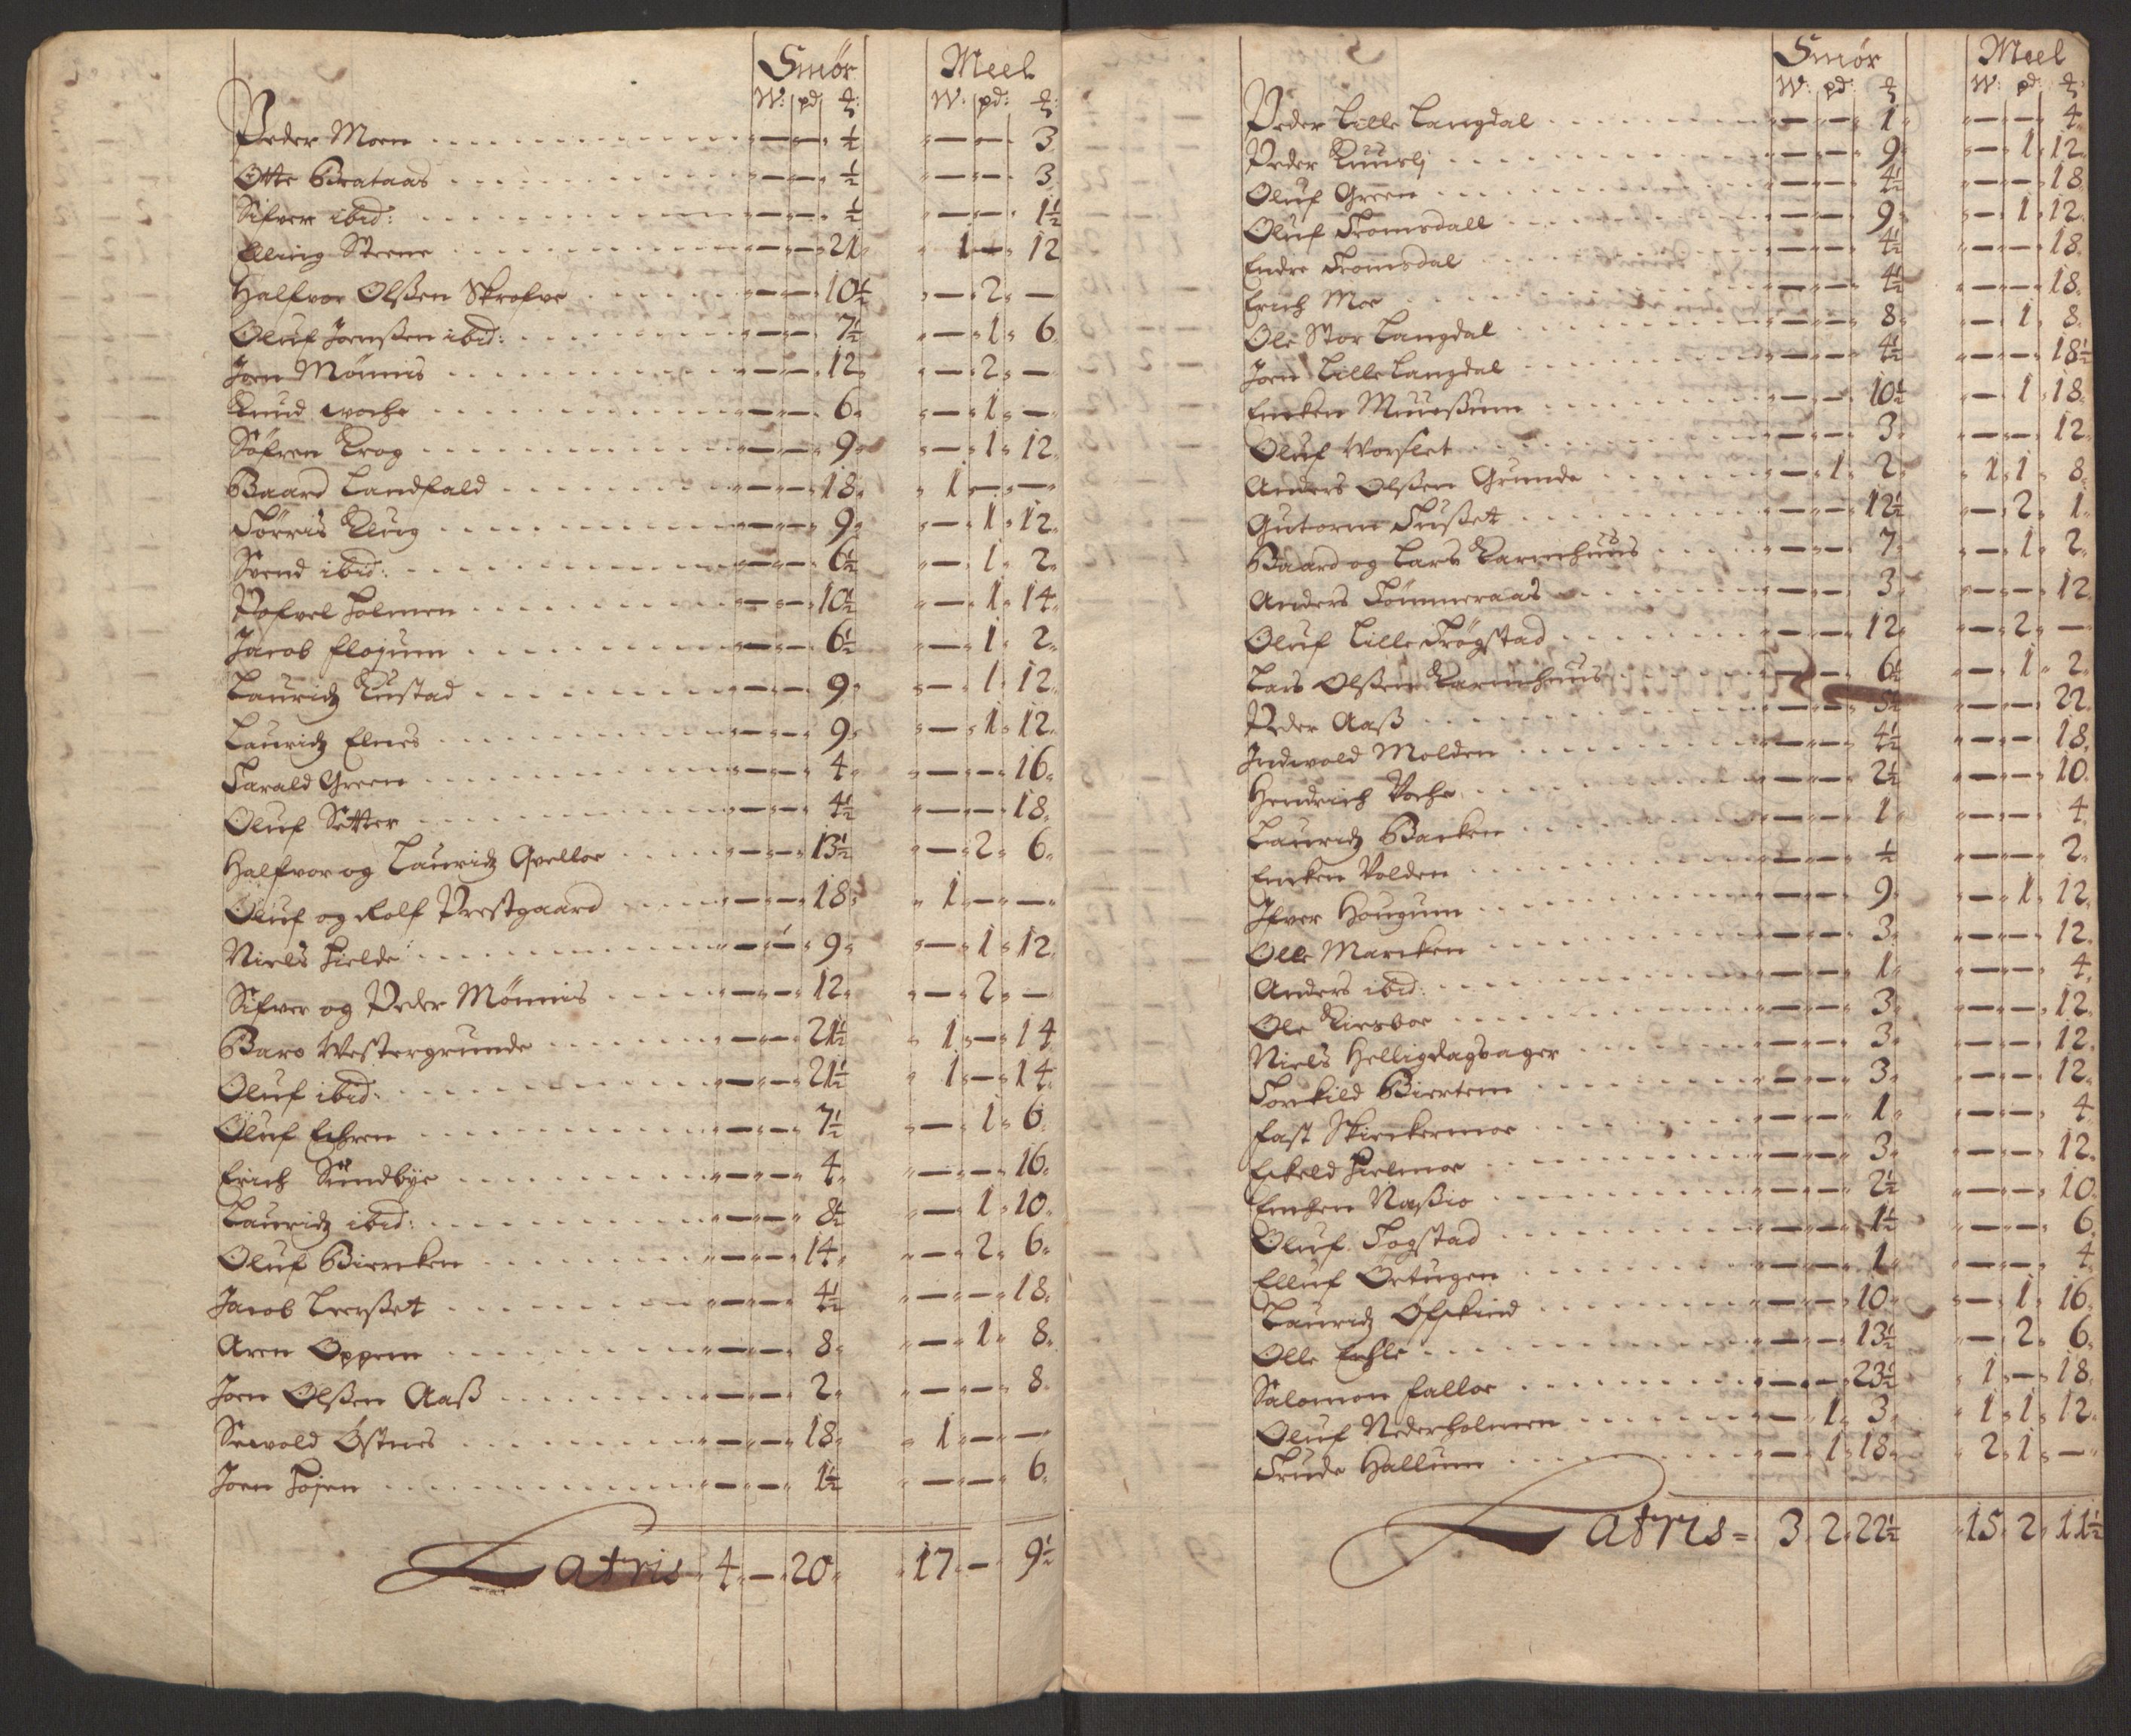 Smör Meel
W: pd ℔: W: pd: ℔:
Peder Moen ½ — — 3
Otte Brataas — — ½ — — 3
Sifver ibid: — — ½ — — 1½
Elling Steene — — 21 1 — 12
Halfvor Olßen Skrofve — — 10½ — 2 —
Oluf Jonßen ibid: — — 7½ — 1 6
Joen Mönnis — — 12 — 2 —
Knud woche — — 6 — 1 —
Söfren Krog — — 9 — 1 12
Baard Landfald — — 18 1 — —
Törris Klug — — 9 — 1 12
Svend ibid: — — 6½ — 1 2
Pofvel Holmen — — 10½ — 1 14
Jacob Flojum — — 6½ — 1 2
Lauridz Kustad — — 9 — 1 12
Lauridz Elnes — — 9 — 1 12
Tarald Green — — 4 — — 16
Oluf Setter — — 4½ — — 18
Halfvor og Lauridz Qvelloe — — 13½ — 2 6
Oluf og Rolf Prestgaard — — 18 1 — —
Niels Hielde — — 9 — 1 12
Sifver og Peder Mönnis — — 12 — 2 —
Baro Westergrunde — — 21½ 1 — 14
Oluf ibid: — — 21½ 1 — 14
Oluf Echren — — 7½ — 1 6
Erich Sundbye — — 4 — — 16
Lauridz ibid: — — 8½ — 1 10
Oluf Biercken — — 14 — 2 6
Jacob Leerßet — — 4½ — — 18
Aren Oppem — — 8 — 1 8
Joen Olßen Aaß — — 2 — — 8
Sevold Östnes — — 18 1 — —
Joen Höjen — — 1½ — — 6
Latris 4 — 20 17 — 9½
Smör Meel
W: pd: ℔ W: pd: ℔:
Peder Lille Langdal — — 1 — — 4
Peder Kuuslj — — 9 — 1 12
Oluf Green — — 4½ — — 18
Oluf Tromsdall — — 9 — 1 12
Endre Tromsdal — — 4½ — — 18
Erich Moe — — 4½ — — 18
Ole Stor Langdal — — 8 — 1 8
Joen Lille Langdal — — 4½ — — 18½
Encken Muusßum — — 10½ — 1 18
Oluf Worslet — — 3 — — 12
Anders Olßen Grunde — 1 2 1 1 8
Gutorm Tusßet — — 12½ — 2 1
Baard og Lars Karmhuus — — 7 — 1 2
Anders Tömmeraas — — 3 — — 12
Oluf Lille Trögstad — — 12 — 2 —
Lars Olßen Karmhuus — — 6½ — 1 2
Peder Aaß — — 5½ — — 22
Indvold Molden — — 4½ — — 18
Hendrich Voche — — 2½ — — 10
Lauridz Backen — — 1 — — 4
Encken Volden — — ½ — — 2
Ifver Hougum — — 9 — 1 12
Olle Marcken — — 3 — — 12
Anders ibid: — — 1 — — 4
Ole Kiesboe — — 3 — — 12
Niels Helligdagsager — — 3 — — 12
Torkild Biertem — — 3 — — 12
Fast Skierkermoe — — 1 — — 4
Eskeld Hielmoe — — 3 — — 12
Enchen Naßio — — 2½ — — 10
Oluf Togstad — — 1½ — — 6
Elluf Ortugen — — 1 — — 4
Lauridz Öfskind — — 10 — 1 16
Olle Echle — — 13½ — 2 6
Salomon Falloe — — 23½ 1 — 18
Oluf Nederholmen — 1 3 1 1 12
Trude Hallum — 1 18 2 1 —
Latris = 3 2 22½ 15 2 11½